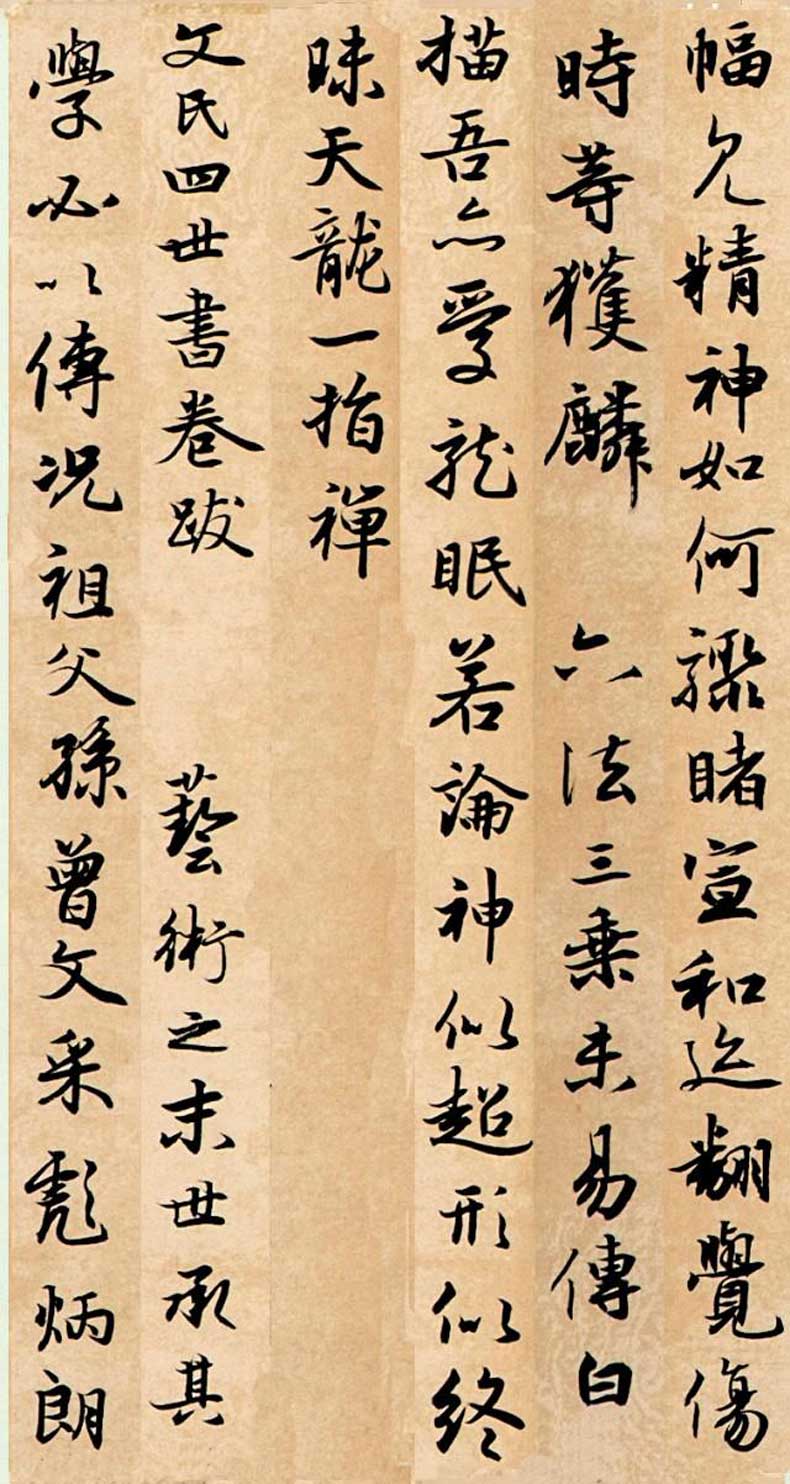 幅見精神如何驟睹宣和迹翻覺傷
時等獲麟　六法三乘未易傳白
描吾亦愛龍眠若論神似超形似終
昧天龍一指禪
文氏四世書卷跋　藝術之末世承其
學必以傳況祖父孫曾文采彪炳朗